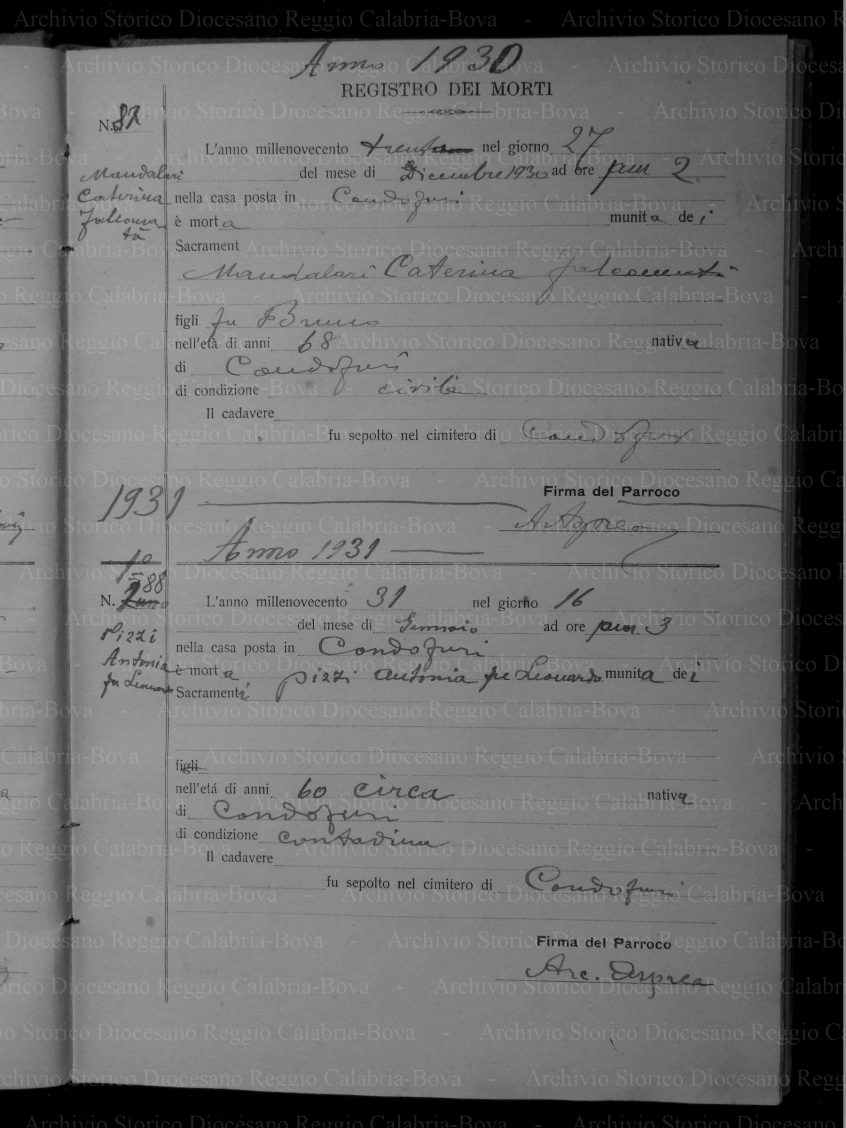 Anno 1930
REGISTRO DEI MORTI
N. 87
Mandalari
Caterina
L'anno millenovecento trenta nel giorno 27
del mese di Dicembre 1930 ad ore pm 2
nella casa posta in Condofuri
è morta munita dei
Sacrament
Mandalari Caterina
figli fu Bruno
nell'età di anni 68 nativa
di Condofuri
di condizione civile
Il cadavere
fu sepolto nel cimitero di Condofuri
Firma del Parroco
1931
Anno 1931
1º
N. 88
Pizzi
Antonia
fu Leonardo
L'anno millenovecento 31 nel giorno 16
del mese di Gennaio ad ore pm 3
nella casa posta in Condofuri
è morta Pizzi Antonia fu Leonardo munita dei
Sacramenti
figli
nell'etá di anni 60 circa nativa
di Condofuri
di condizione contadina
Il cadavere
fu sepolto nel cimitero di Condofuri
Firma del Parroco
Arc. Asprea
Archivio Storico Diocesano Reggio Calabria-Bova